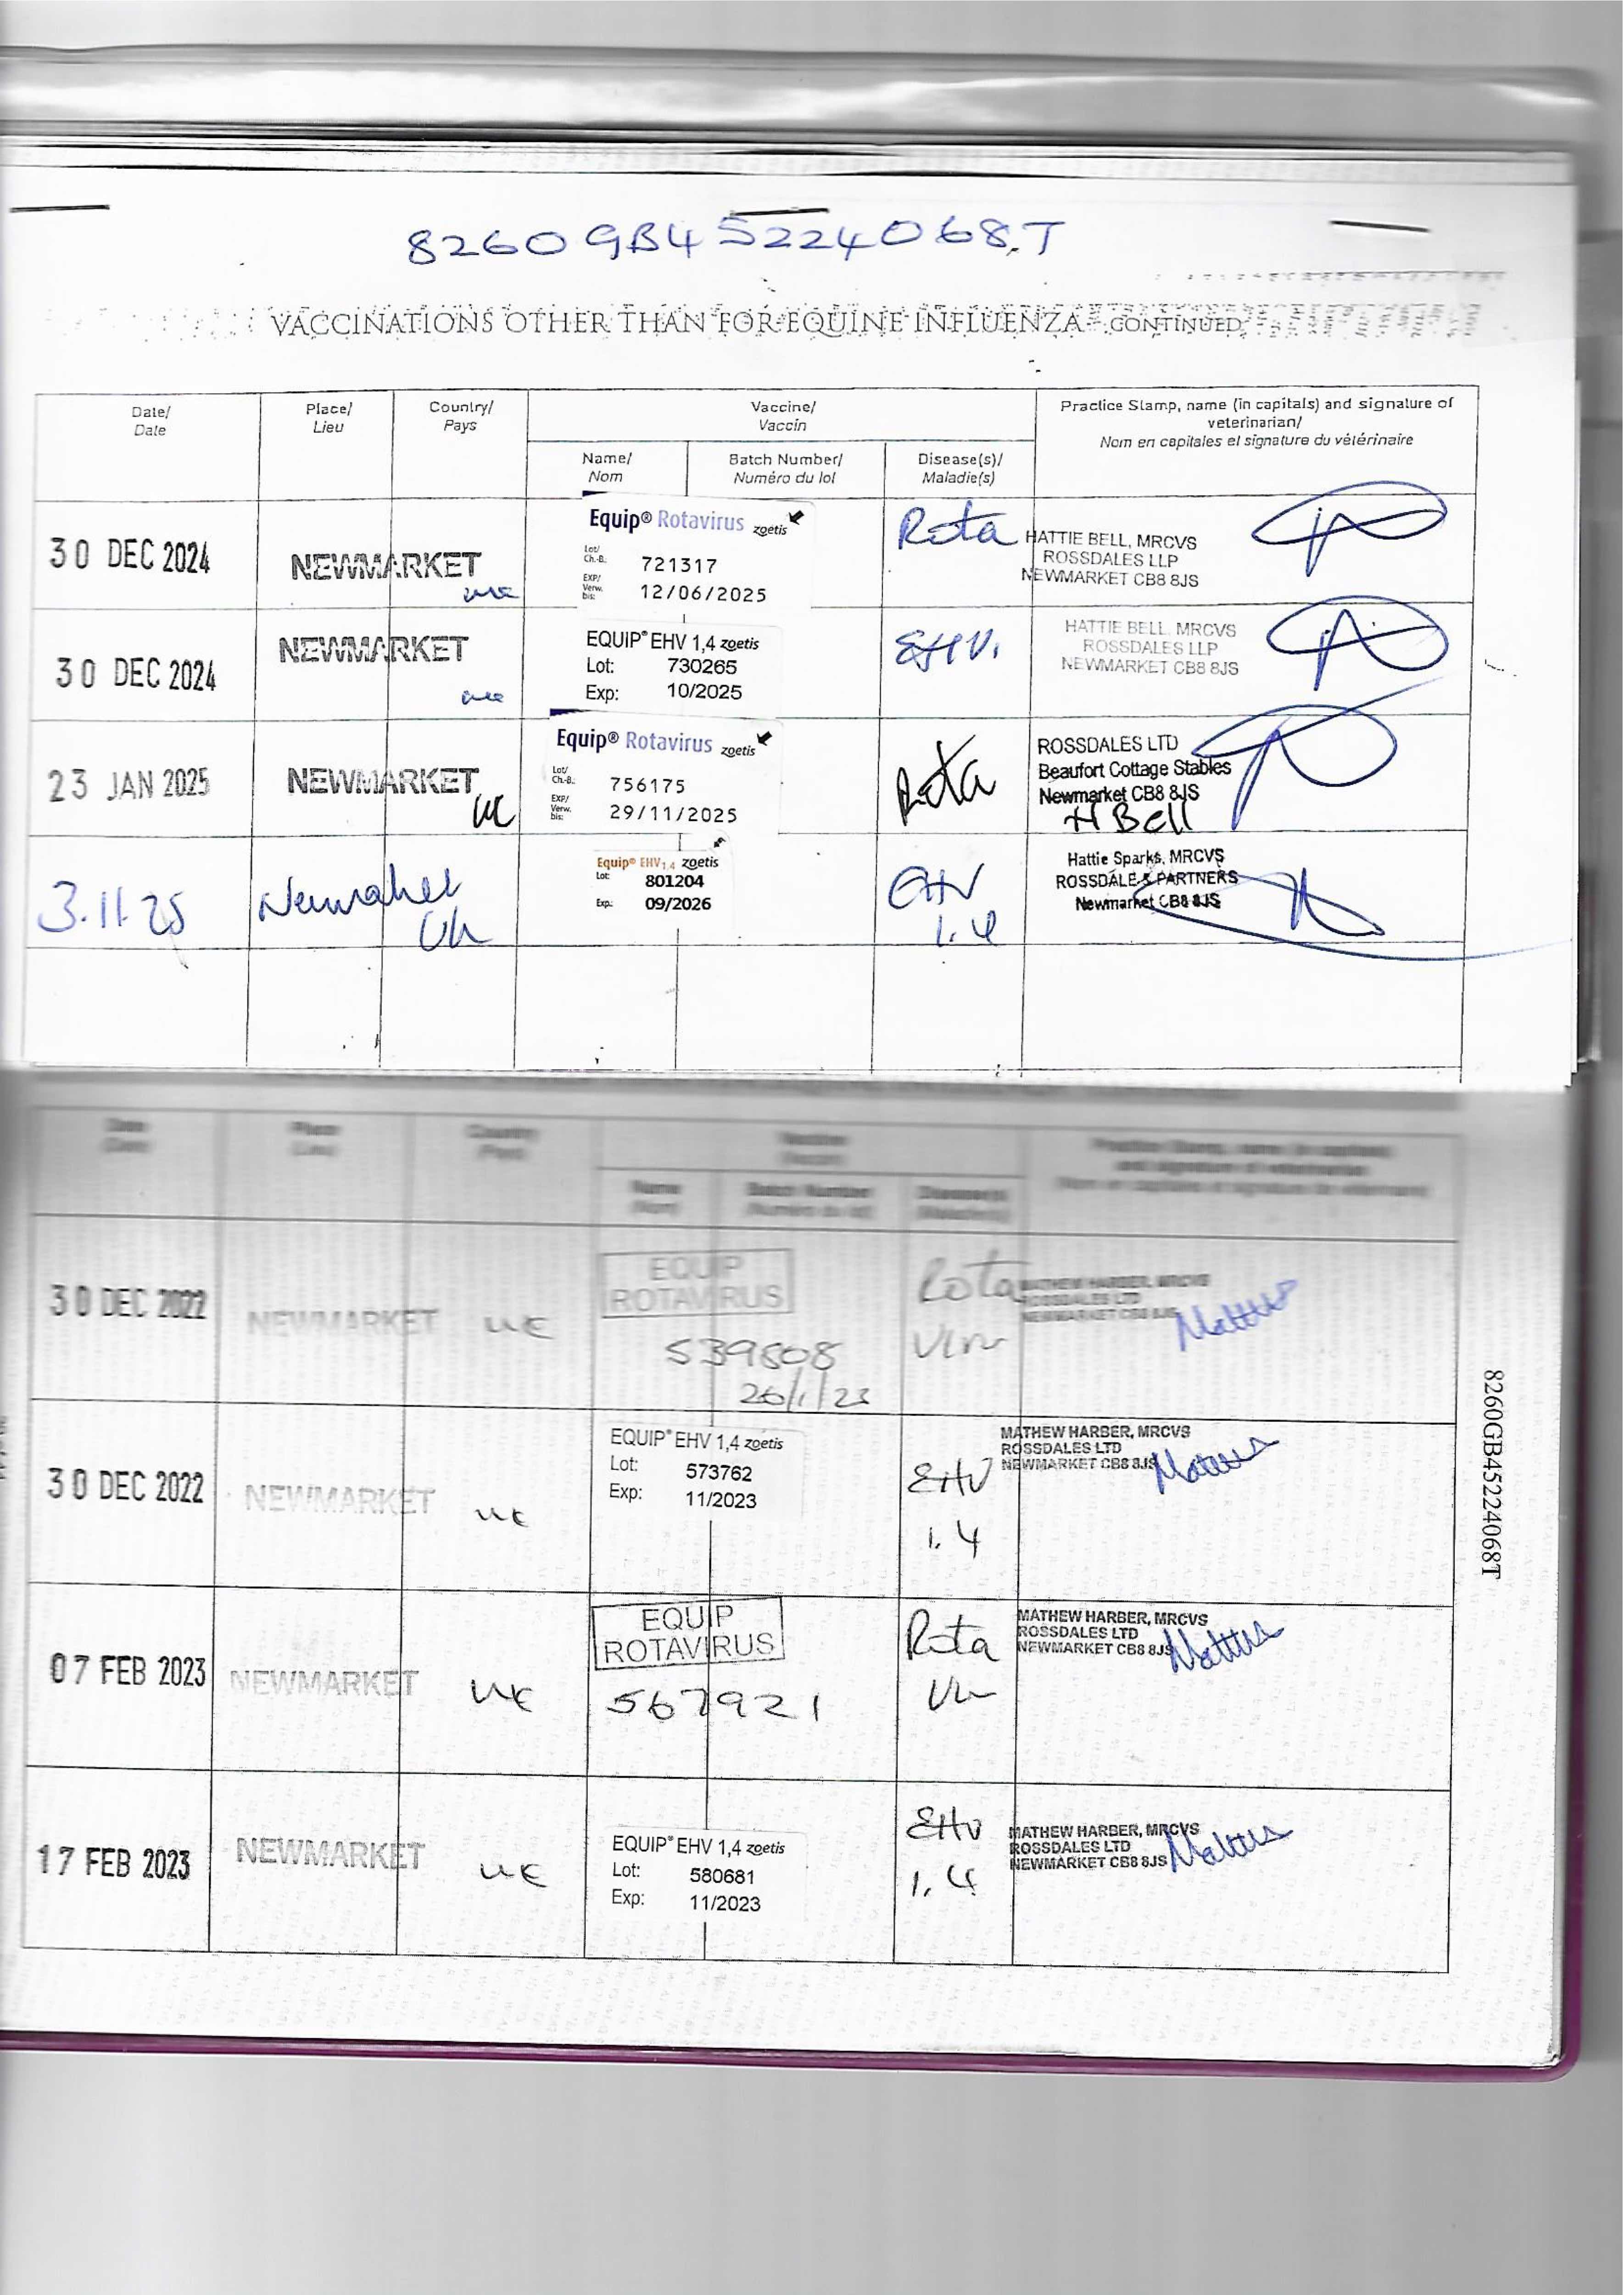 8260GB45224068T
VACCINATIONS OTHER THAN FOR EQUINE INFLUENZA - CONTINUED
Date/ Date
Place/ Lieu
Country/ Pays
Vaccine/ Vaccin
Practice Stamp, name (in capitals) and signature of veterinarian/
Nom en capitales et signature du vétérinaire
Name/ Nom
Batch Number/ Numéro du lot
Disease(s)/ Maladie(s)
30 DEC 2024
NEWMARKET
UK
Equip® Rotavirus zoetis
Lot/ Ch.-B.: 721317
EXP/ Verw. bis: 12/06/2025
Rota
HATTIE BELL, MRCVS
ROSSDALES LLP
NEWMARKET CB8 8JS
30 DEC 2024
NEWMARKET
UK
EQUIP® EHV 1,4 zoetis
Lot: 730265
Exp: 10/2025
EHV.
HATTIE BELL. MRCVS
ROSSDALES LLP
NEWMARKET CB8 8JS
23 JAN 2025
NEWMARKET
UK
Equip® Rotavirus zoetis
Lot/ Ch.-B.: 756175
EXP/ Verw. bis: 29/11/2025
Rota
ROSSDALES LTD
Beaufort Cottage Stables
Newmarket CB8 8JS
H Bell
3.11.25
Newmarket
Uk
Equip® EHV 1,4 zoetis
Lot: 801204
Exp.: 09/2026
EHV
1.4
Hattie Sparks, MRCVS
ROSSDALE & PARTNERS
Newmarket CB8 8JS
Date
Place
Country
Name
Batch Number
30 DEC 2022
NEWMARKET
UK
EQUIP
ROTAVIRUS
539508
26/1/23
Rota
MATHEW HARBER, MRCVS
ROSSDALES LTD
NEWMARKET CB8 8JS
30 DEC 2022
NEWMARKET
UK
EQUIP® EHV 1,4 zoetis
Lot: 573762
Exp: 11/2023
EHV
1.4
MATHEW HARBER, MRCVS
ROSSDALES LTD
NEWMARKET CB8 8JS
07 FEB 2023
NEWMARKET
UK
EQUIP
ROTAVIRUS
567921
Rota
MATHEW HARBER, MRCVS
ROSSDALES LTD
NEWMARKET CB8 8JS
17 FEB 2023
NEWMARKET
UK
EQUIP® EHV 1,4 zoetis
Lot: 580681
Exp: 11/2023
EHV
1.4
MATHEW HARBER, MRCVS
ROSSDALES LTD
NEWMARKET CB8 8JS
8260GB45224068T